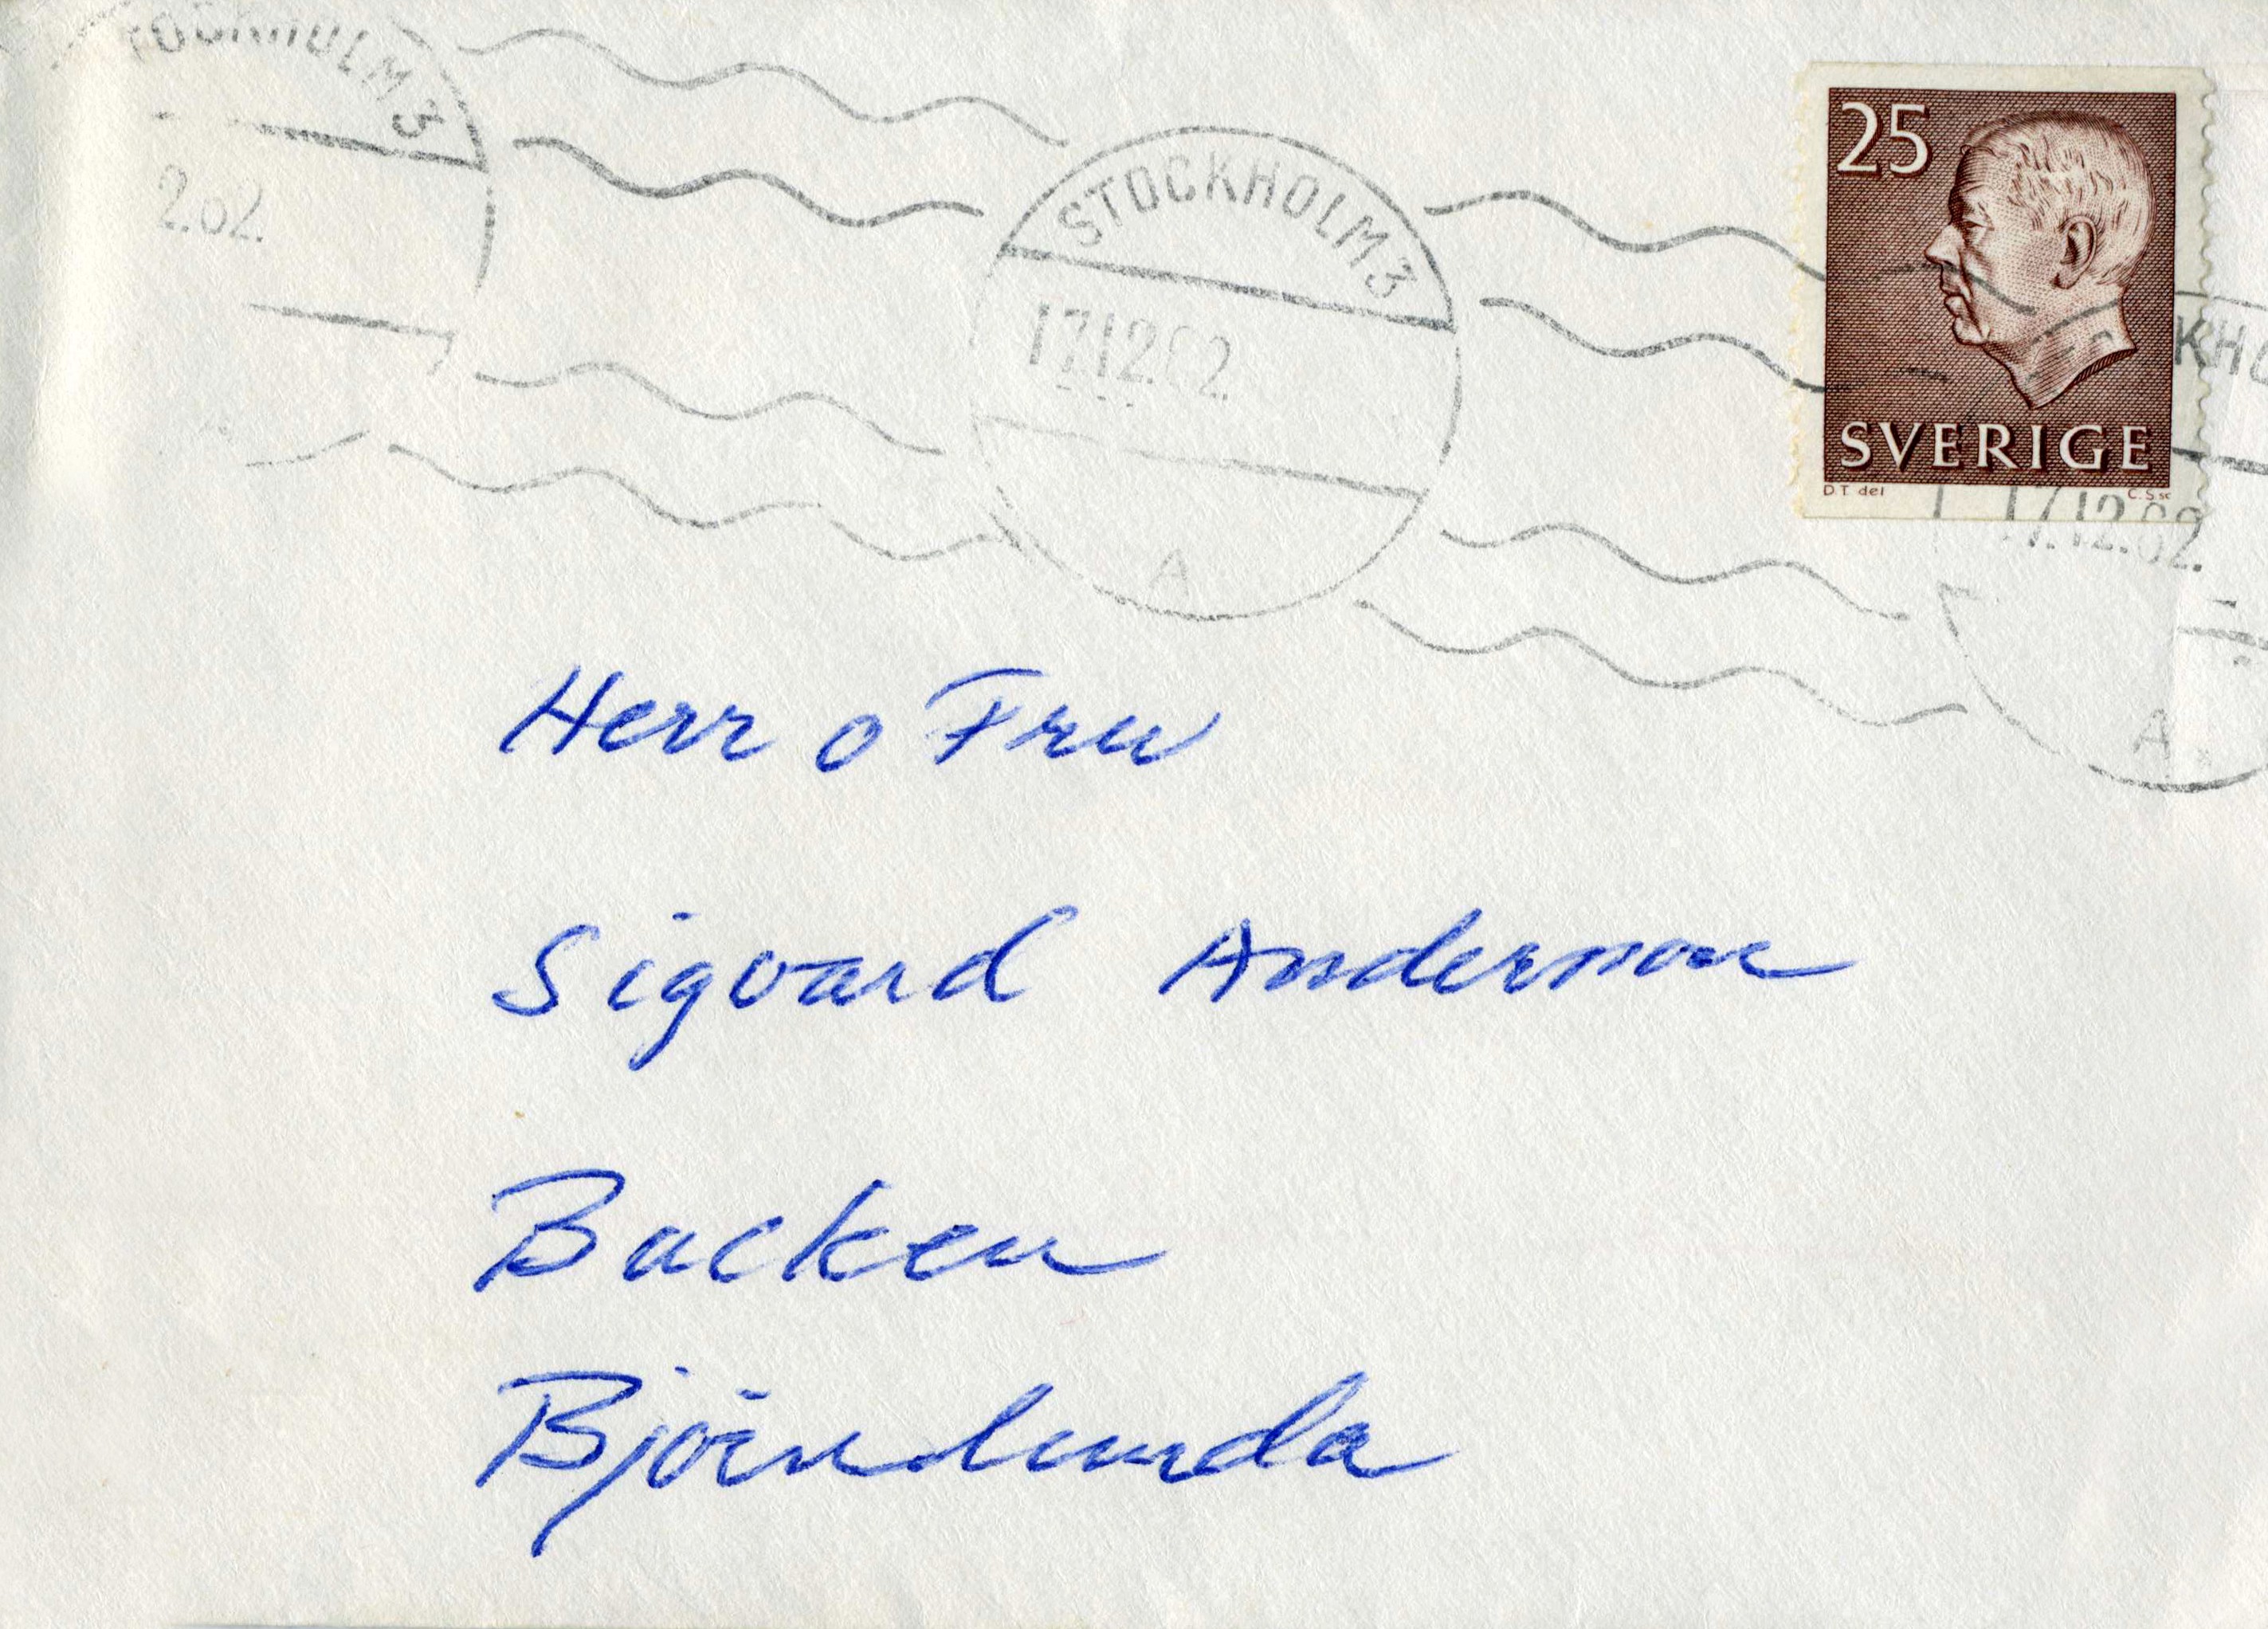 TOCKHOLM 3
2.62.
STOCKHOLM 3
17.12.62.
A
25
SVERIGE
D.T. del
C.S sc
KHO
17.12.62.
A
Herr o Fru
Sigvard Andersson
Backen
Björnlunda